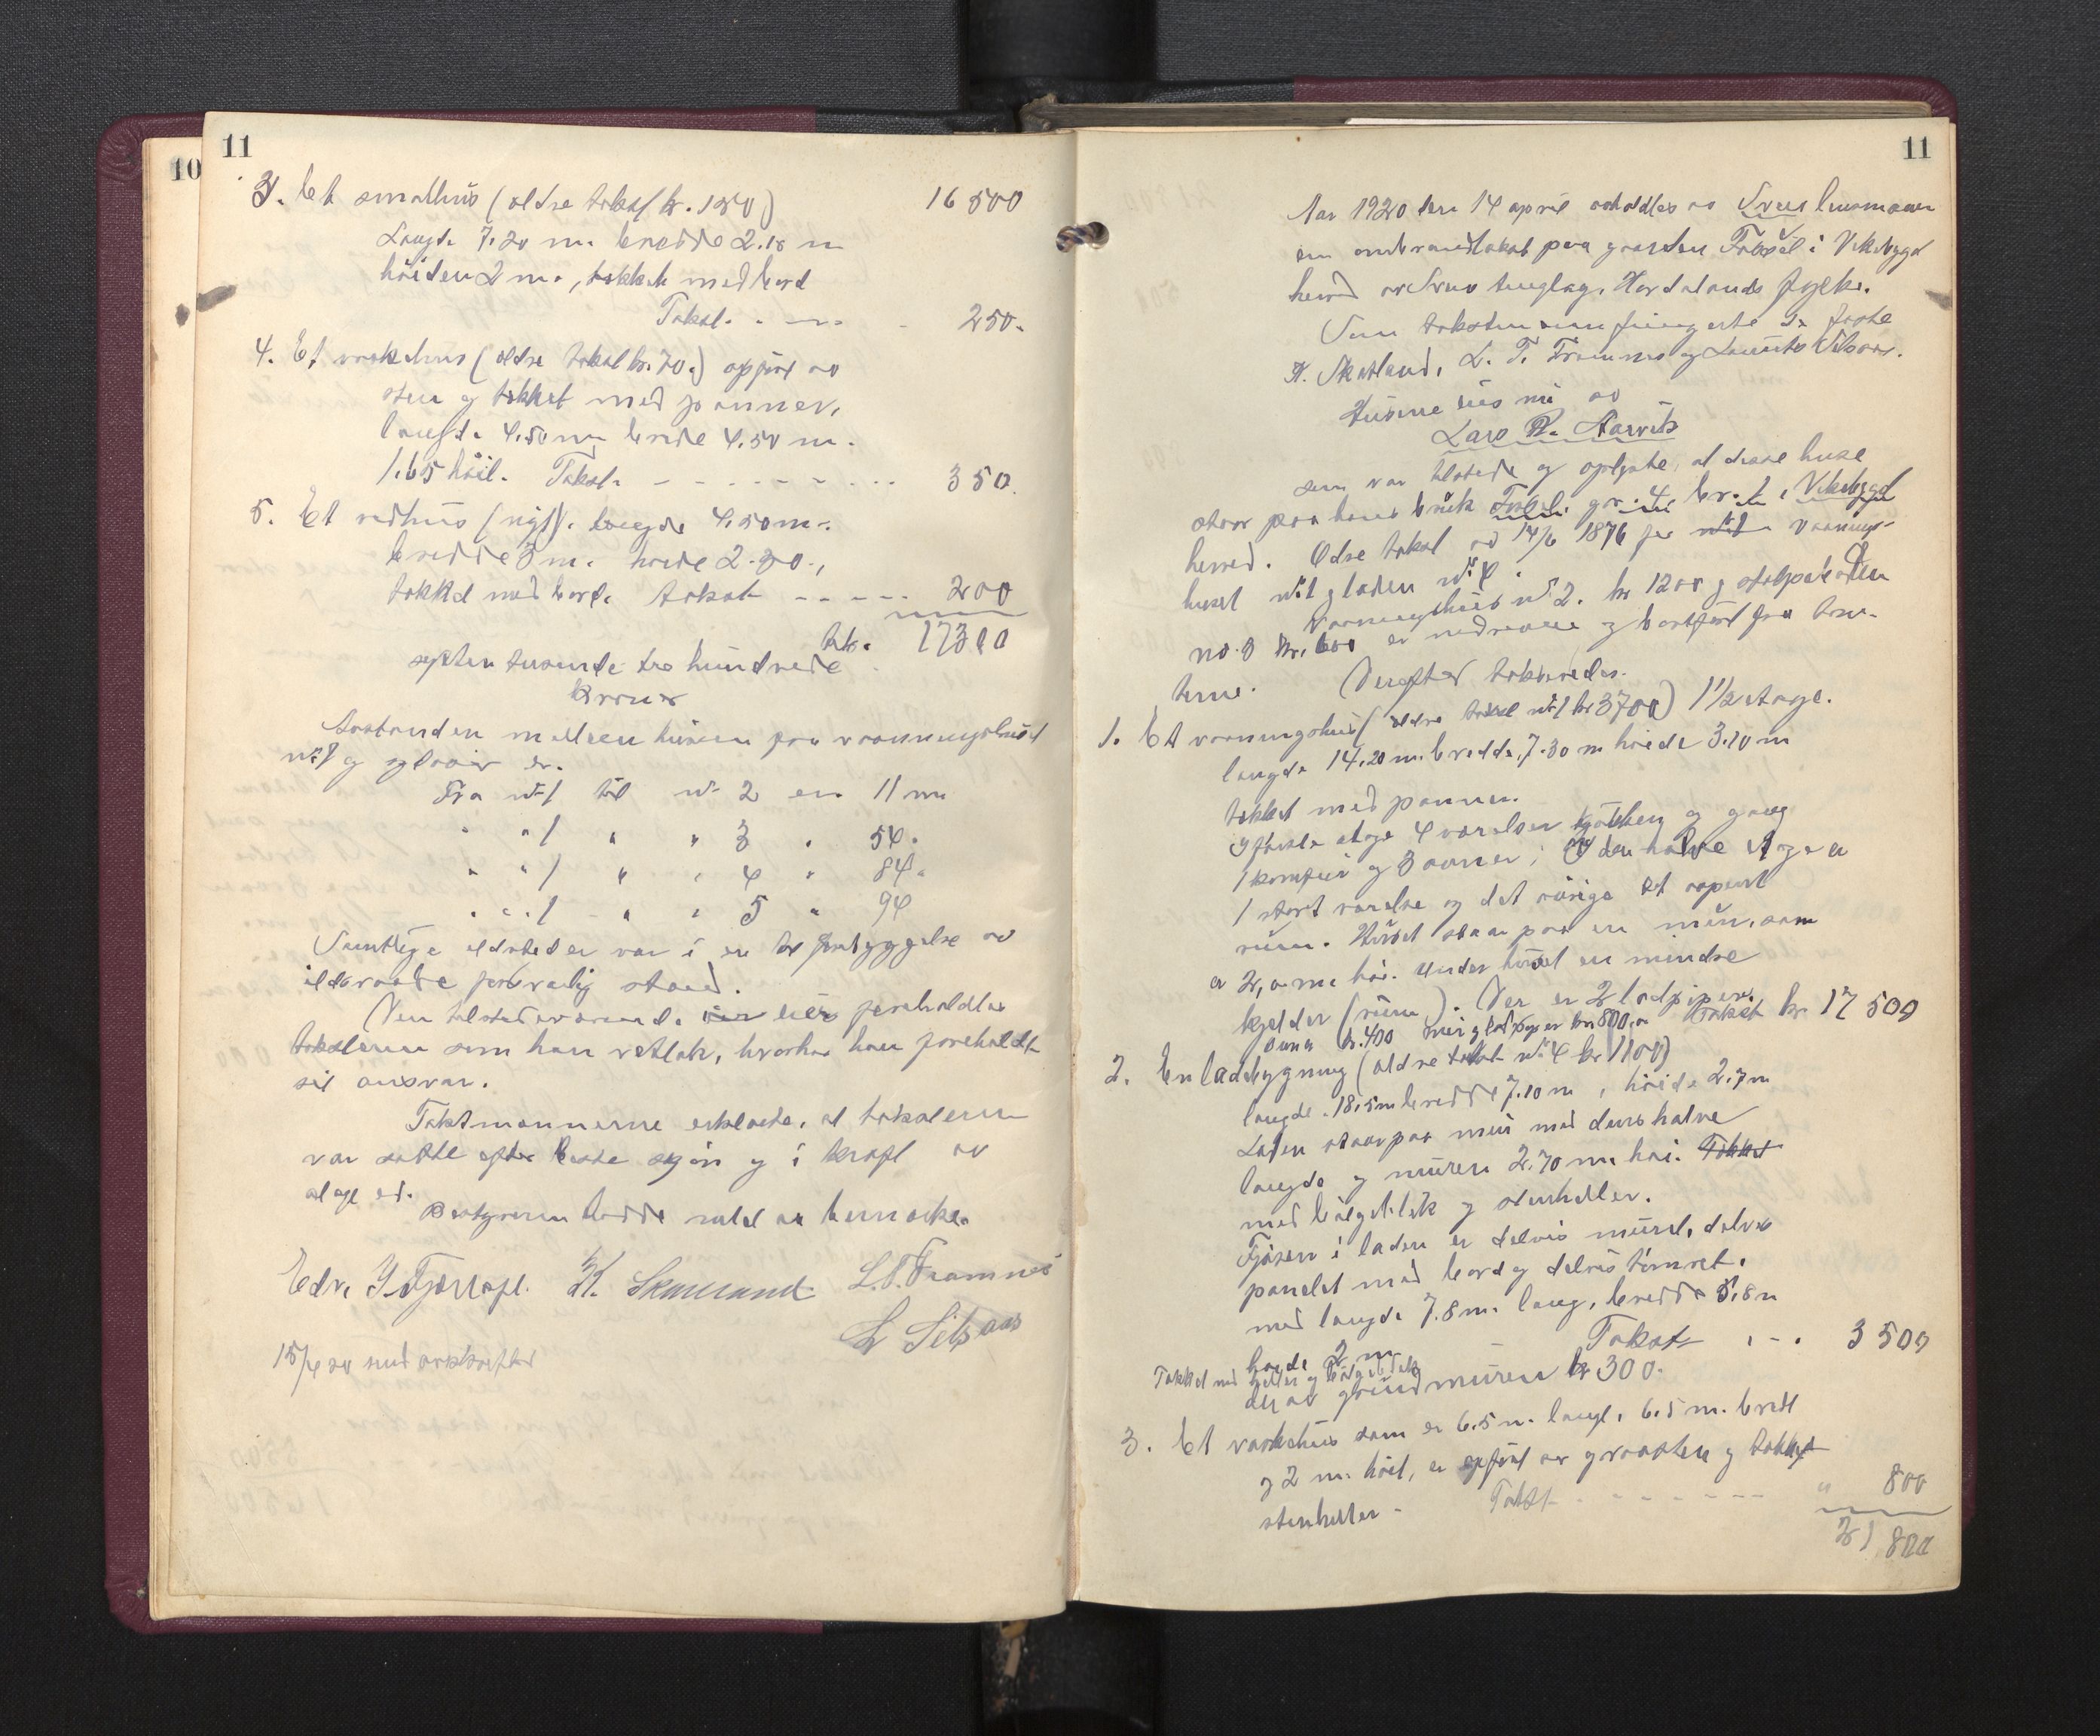 10
11
3. Et smalhus (eldre takst kr. 150) 16 500
Længde 7.20 m. bredde 2.18 m
höiden 2 m., tækket med bord
Takst. - - - - 250.
4. Et vaskehus (eldre takst kr. 70.) opført av
sten og tækket med panner,
længde 4.50 m bredde 4.50 m.
1.65 høit. Takst. - - - - - - - 350.
5. Et vedhus (nyt). længde 4.50 m.
bredde 3 m. høide 2.30.,
tækket med bord. takst - - - - - 200
kr. 17300
sytten tusende tre hundrede
kroner
Avstanden mellem husene fra vaaningshuset
nr. 1 og
Fra nr 1 til nr 2 er 11 m
" " 1 " " 3 " 54.
" " 1 " " 4 " 84.
" " 1 " " 5 " 94
Samtlige ildsteder var i en for forebyggelse av
ildsvaade forsvarlig stand.
Den tilstedeværende eier foreholdtes
taksterne som han vedtok, hvorhos han foreholdt
sit ansvar.
Takstmennerne erklærte, at taksterne
var satte efter beste skjøn og i kraft av
avlagt ed.
Bestyreren hadde intet at bemerke.
Edv. J. Fjærtoft. H. Skartland L. T. Framnes
L Silsaas
15/4 20 utskrift
11
Aar 1920 den 14 april avholdtes av Ølens lensmann
en ombrandtakst paa gaarden i Vikebygd
herred av tinglag, Hordalands fylke.
Som takstmenn fungerte de faste
H. Skartland, L. T. Framnes og Laurits Silsaas.
Husene eies nu av
Lars R. Aarvik
som var tilstede og oplyste, at disse huse
staar paa hans bruk gr. nr. 4 br. nr. 1 i Vikebygd
herred. Eldre takst av 14/6 1876 for vaanings-
huset nr. 1 og laden nr. 4.
Vaaningshus nr. 2. kr 1200 og stolpeboden
no. 3 kr. 600 er nedrevne og bortført fra tom-
terne. Derefter takseredes.
1. Et vaaningshus (eldre takst nr. 1 kr 3700) 1 1/2 etage.
længde 14.20 m. bredde 7.30 m høide 3.10 m
tækket med panner.
I første etage 4 værelser kjøkken og gang
1 komfur og 3 ovner; I den halve etage er
1 stort værelse og det øvrige et aapent
rum. Huset staar paa en mur, som
er 2,0 m. høi. Under huset en mindre
kjelder (rum). Der er 2 ladpiper. Takst kr. 17 500
ovne kr. 400 mur og ladpiper kr 800,00
2. En ladebygning (eldre takst nr. 4 kr 1100)
længde. 18,5 m bredde 7.10 m, høide 2.7 m
Laden staar paa mur med dens halve
længde og muren 2.70 m høi. Tækket
med bølgeblik og stenheller.
Fjøsen i laden er delvis muret, delvis
panelet med bord og delvis tømret.
med længde 7.8 m. lang, bredde 5.8 m
høide 2 m Takst . - . 3 500
Tækket med heller og bølgeblik
derav grundmuren kr 300.
3. Et vaskehus som er 6.5 m. langt, 6.5 m. bredt
og 2 m. høit, er opført av graasten og tækket
stenheller - Takst - - - - - - - " 800
21 800